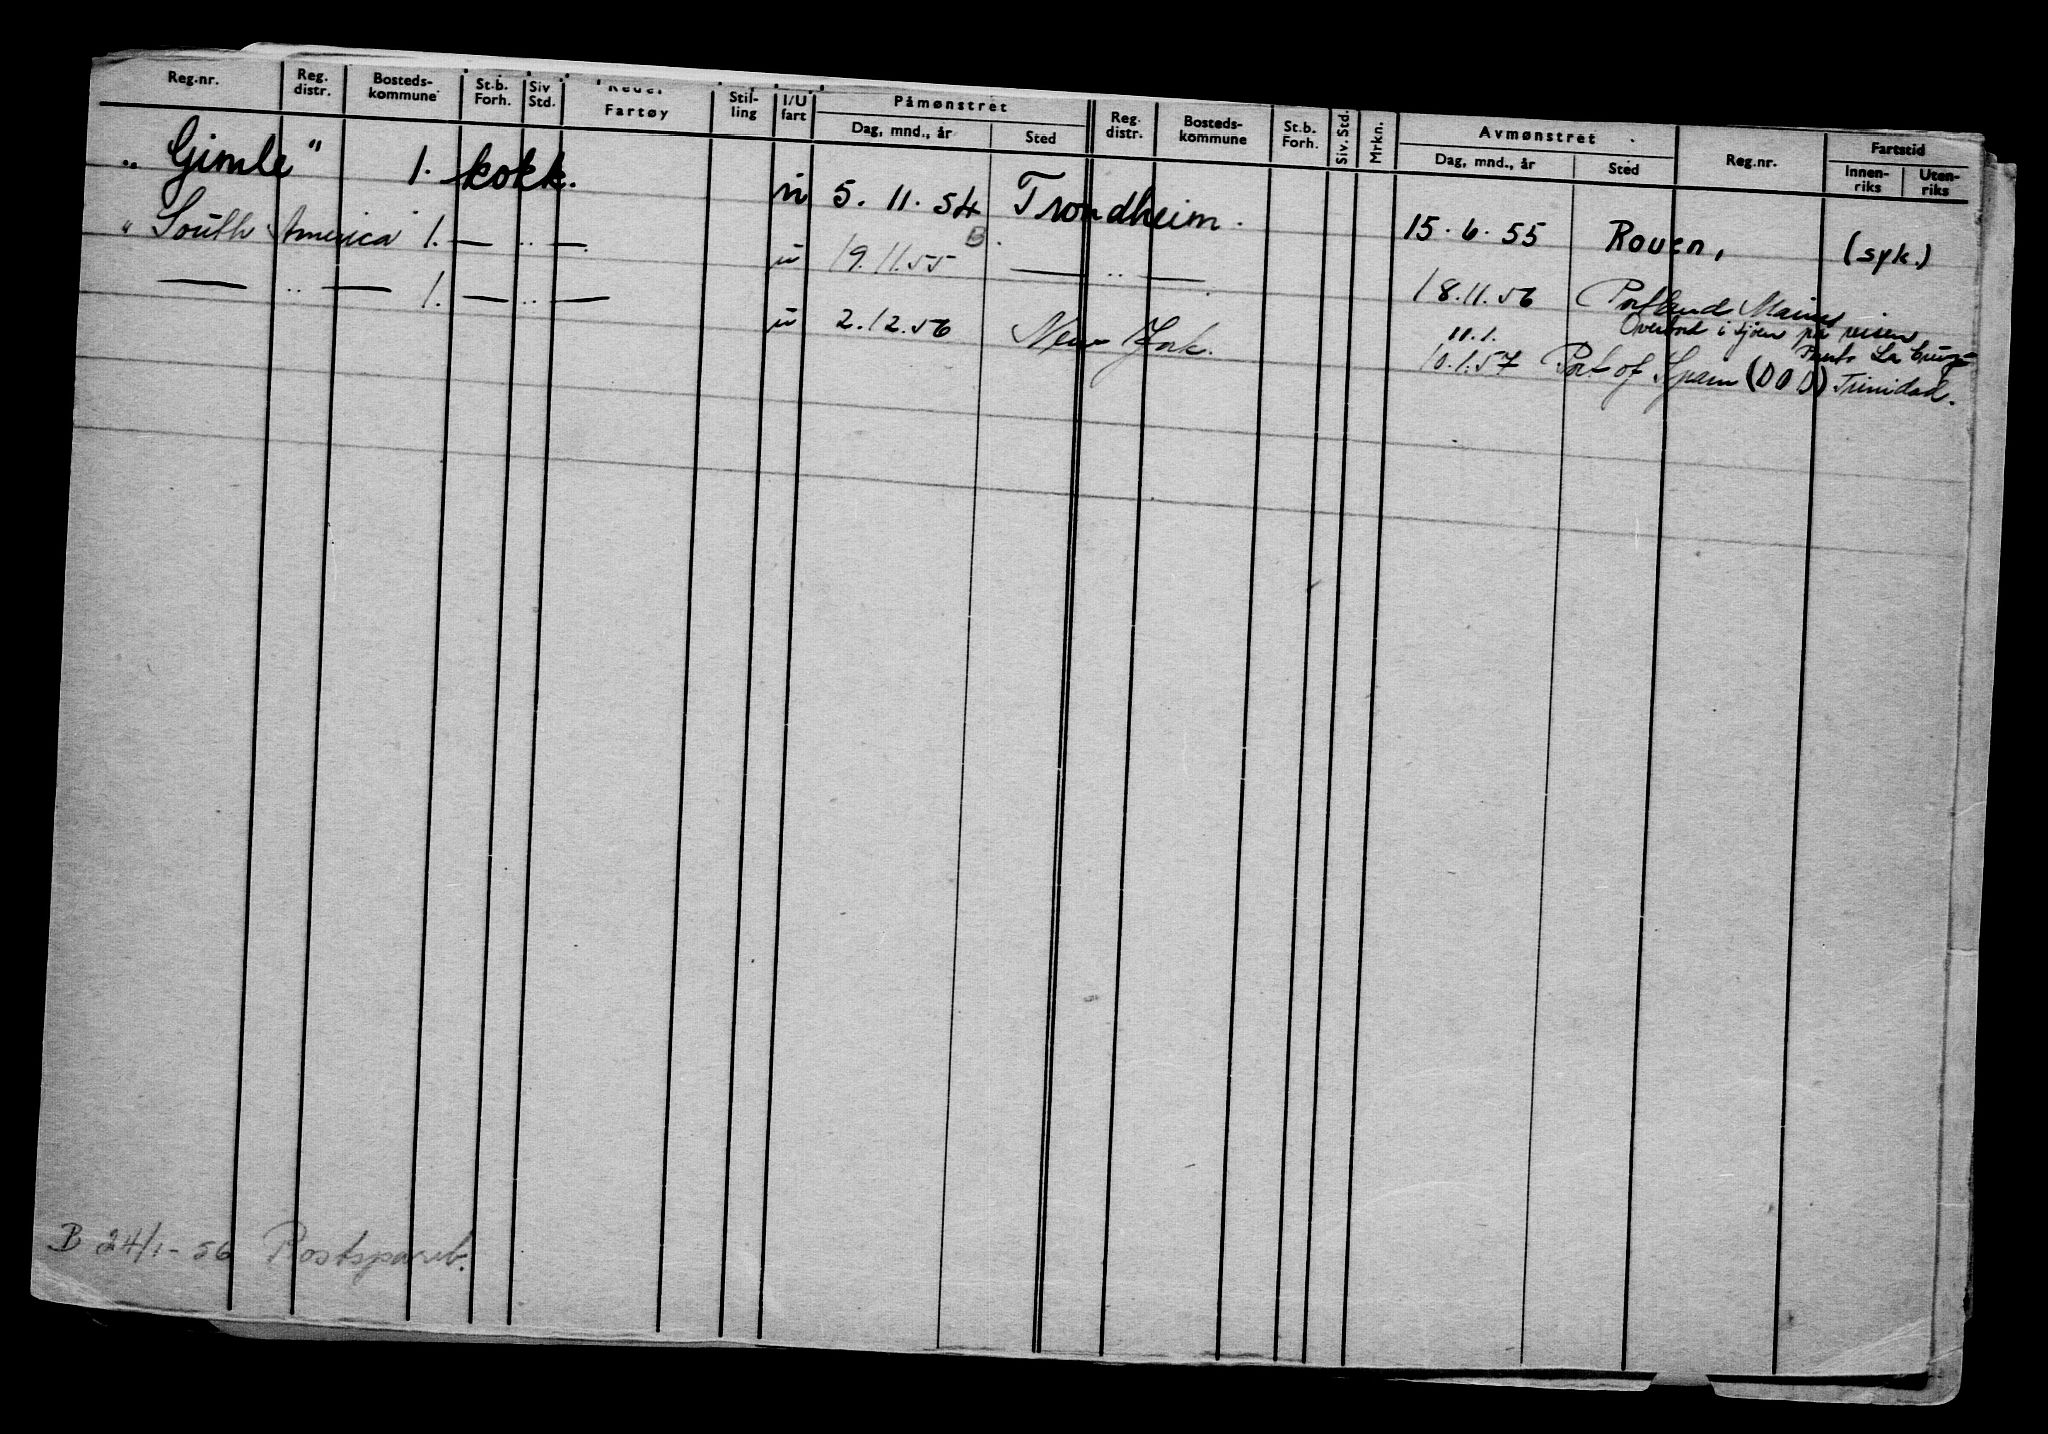 Reg.nr. Reg. distr. Bosteds-kommune St.b. Forh. Siv Std. Fartøy Stil-ling I/U fart Påmønstret Dag, mnd., år Sted Reg. distr. Bosteds-kommune St.b. Forh. Siv. Std. Mrkn. Avmønstret Dag, mnd., år Sted Reg.nr. Fartstid Innen-riks Uten-riks
„ Gimle" 1. kokk. u 5. 11. 54 Trondheim. 15. 6. 55 Rouen, (syk.)
" South America 1. — .. — . u 19.11.55 B. — .. — . 18.11.56 Portland Maine
— .. — 1. — .. — u 2.12.56 New York. 10.1.57 Port of Spain (DOD) Trinidad.
Overbord i sjøen på reisen
11.1. La
B 24/1-56 Postspareb.